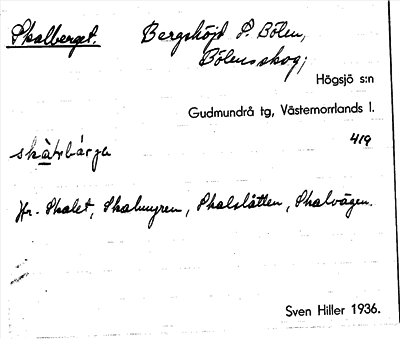 Skalberget. Bergshöjd S. Bölen,
Bölensskog;
Högsjö s:n
Gudmundrå tg, Västernorrlands l.
419
Jfr. Skalet, Skalmyren, Skalslåtten, Skalvägen.
Sven Hiller 1936.